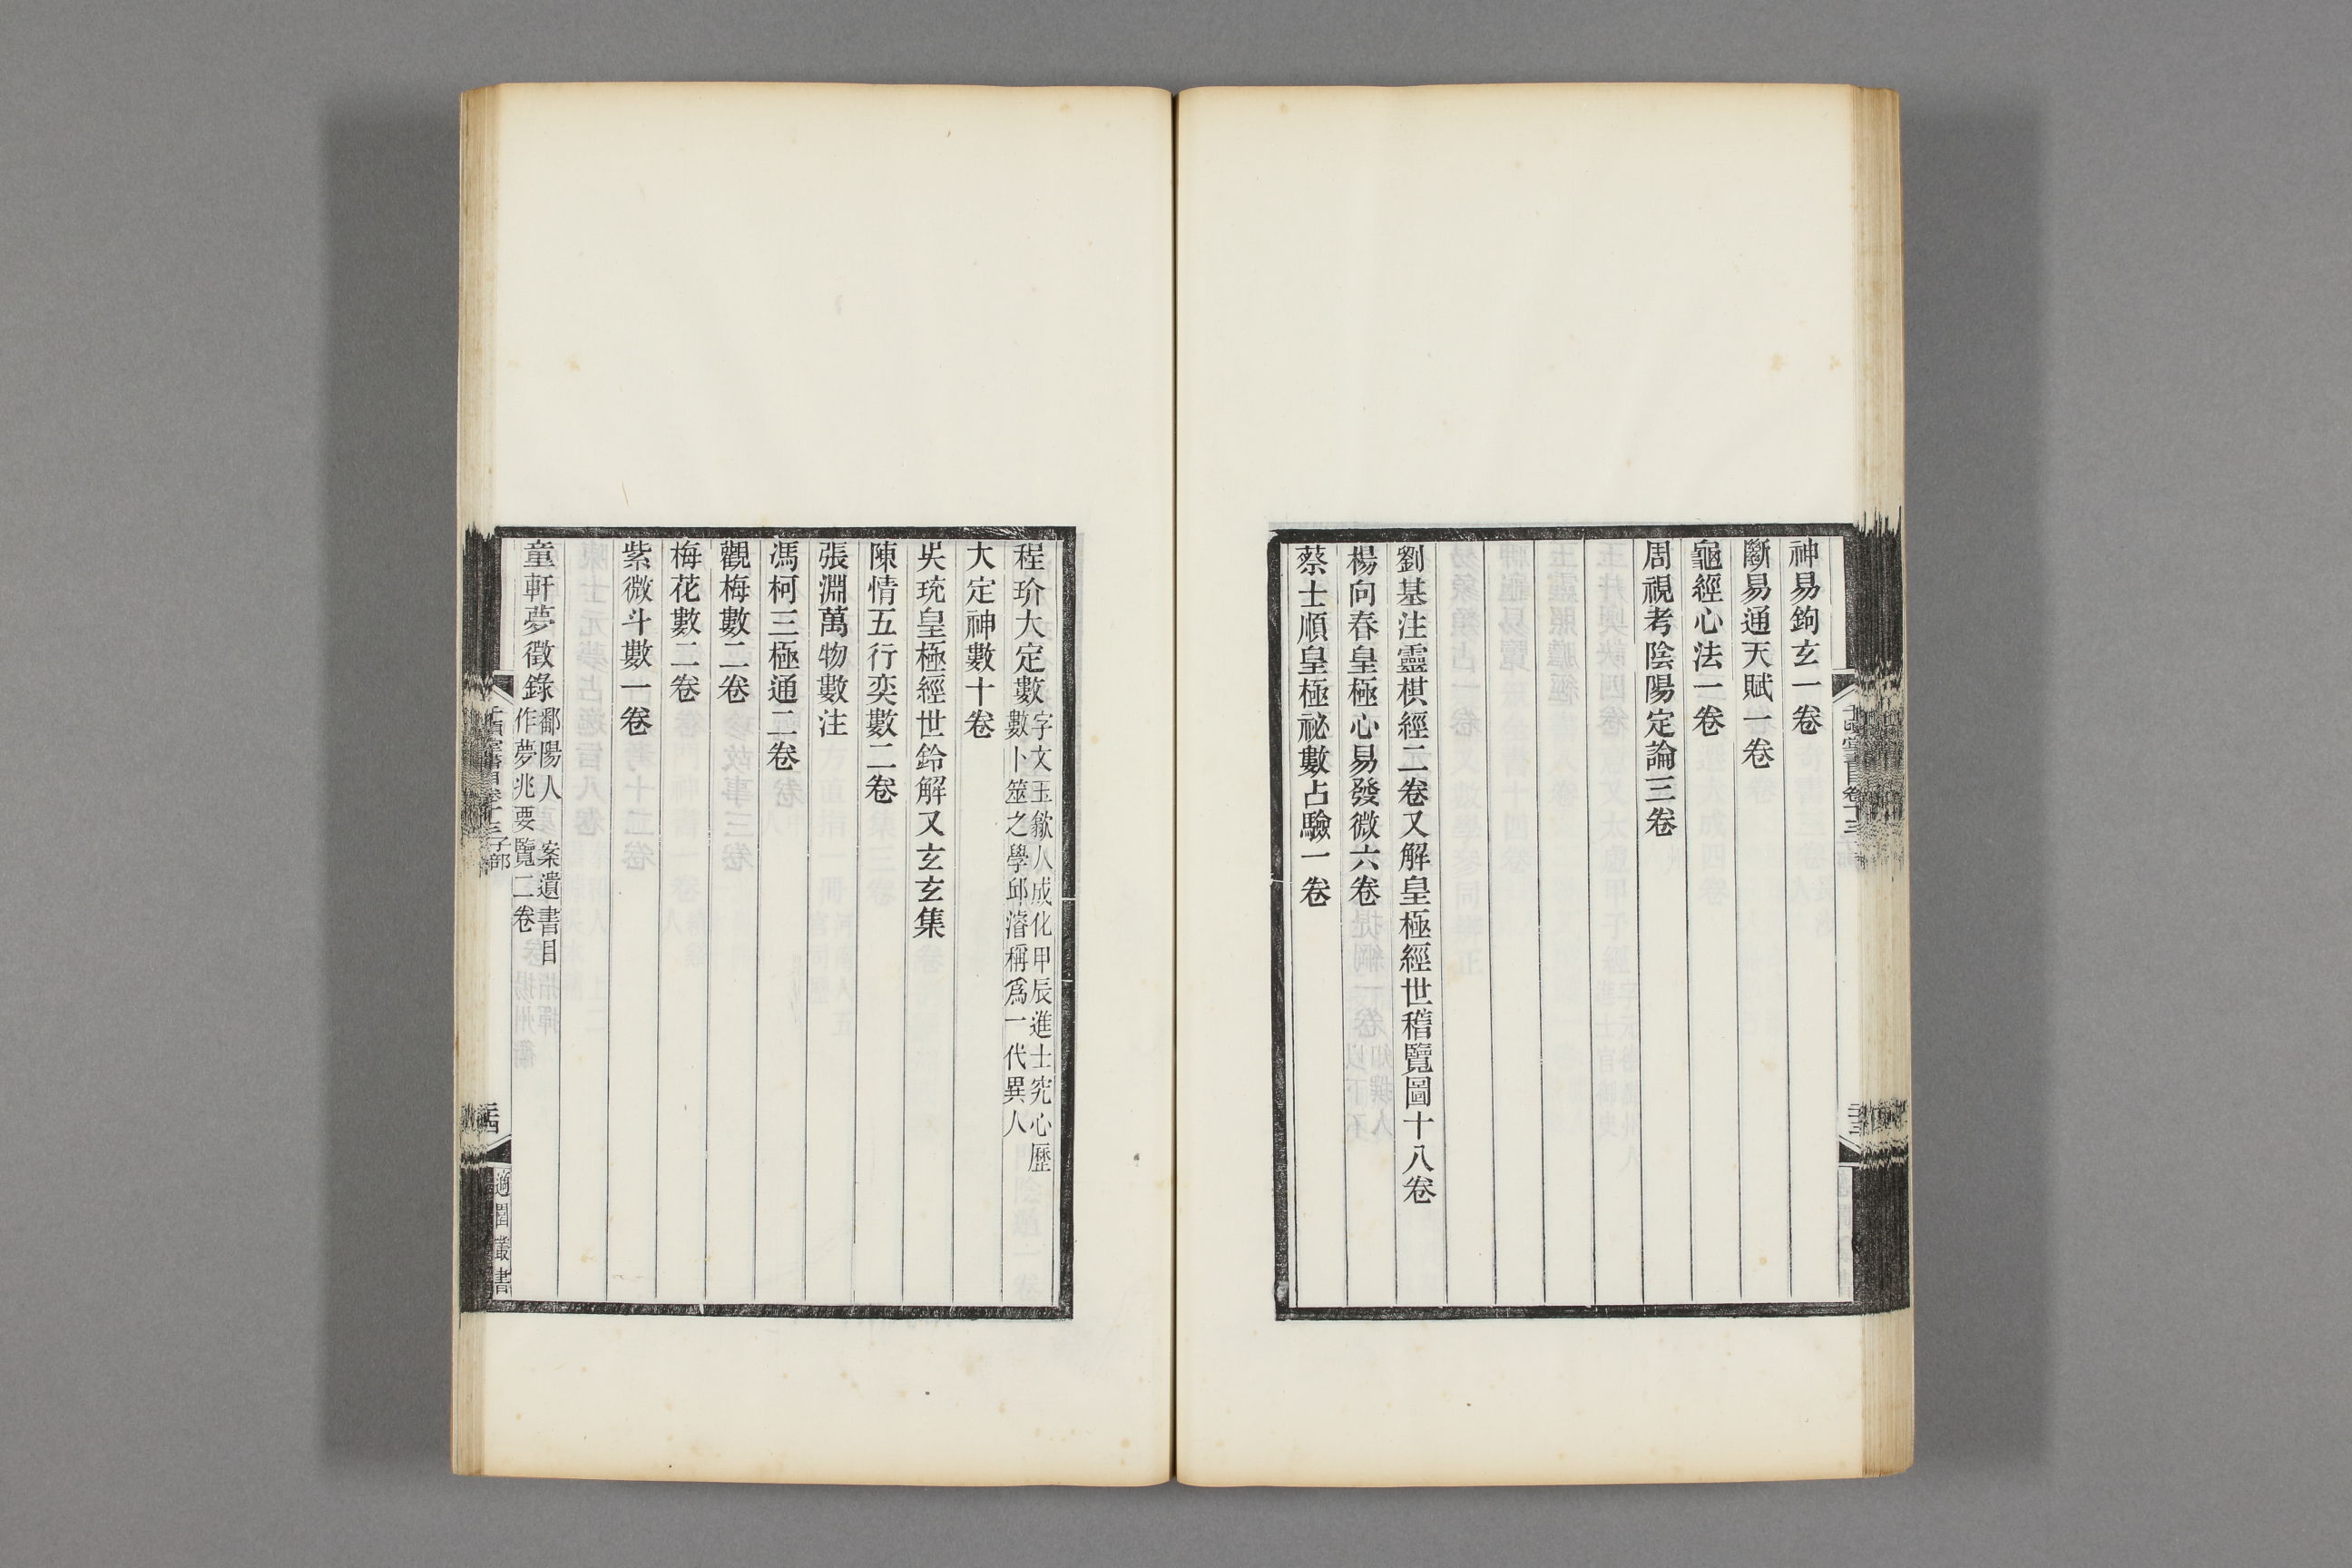 神易鉤玄一卷
斷易通天賦一卷
龜經心法一卷
周視考陰陽定論三卷
劉基注靈棋經二卷又解皇極經世稽覽圖十八卷
楊向春皇極心易發微六卷
蔡士順皇極祕數占驗一卷
程玠大定數字文玉歙人成化甲辰進士究心歷
數卜筮之學邱濬稱爲一代異人
大定神數十卷
吳珫皇極經世鈐解又玄玄集
陳情五行奕數二卷
張淵萬物數注
馮柯三極通二卷
觀梅數二卷
梅花數二卷
紫微斗數一卷
童軒夢徵錄鄱陽人 案遺書目
作夢兆要覽二卷
子部
適園叢書